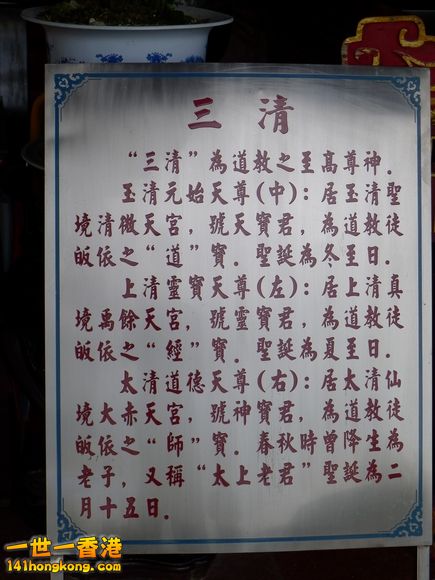 三清
“三清”為道教之至高尊神.
玉清元始天尊(中):居玉清聖
境清微天宮,號天寶君,為道教徒
皈依之“道”寶.聖誕為冬至日.
上清靈寶天尊(左):居上清真
境禹餘天宮,號靈寶君,為道教徒
皈依之“經”寶.聖誕為夏至日.
太清道德天尊(右):居太清仙
境大赤天宮,號神寶君,為道教徒
皈依之“師”寶.春秋時曾降生為
老子,又稱“太上老君”聖誕為二
月十五日.
一世一香港
141hongkong.com